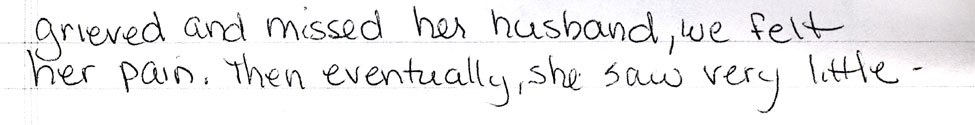 grieved and missed her husband, we felt
her pain. Then eventually, she saw very little -